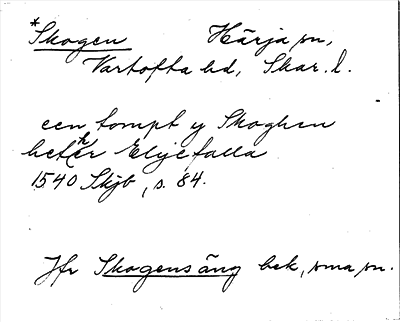 *Skogen Härja sn,
Vartofta hd, Skar. l.
een tompt y Skoghen
hether Elyefalla
1540 Skjb, s. 84.
Jfr Skogensäng bek, sma sn.